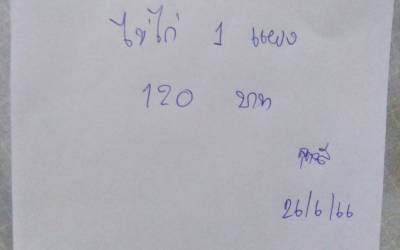 ไข่ไก่ 1 แผง
120 บาท
26/6/66